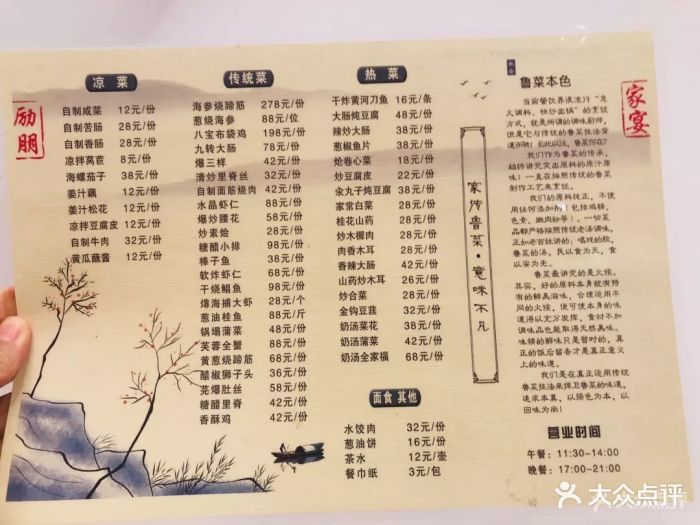 励朋
凉 菜
自制咸菜 12元/份
自制苦肠 28元/份
自制香肠 28元/份
凉拌莴苣 8元/份
海螺茄子 38元/份
姜汁藕 12元/份
姜汁松花 12元/份
凉拌豆腐皮 12元/份
自制牛肉 32元/份
黄瓜蘸酱 12元/份
传统菜
海参烧蹄筋 278元/份
葱烧海参 88元/位
八宝布袋鸡 198元/份
九转大肠 78元/份
爆三样 42元/份
清炒里脊丝 32元/份
自制面筋烧肉 42元/份
水晶虾仁 88元/份
爆炒腰花 58元/份
炒素烩 28元/份
糖醋小排 98元/份
棒子鱼 38元/份
软炸虾仁 68元/份
干烧鲳鱼 98元/份
㸆海捕大虾 28元/个
葱油桂鱼 88元/斤
锅塌蒲菜 48元/份
芙蓉全蟹 88元/份
黄葱烧蹄筋 88元/份
醋椒狮子头 38元/份
芫爆肚丝 58元/份
糖醋里脊 42元/份
香酥鸡 42元/份
热 菜
干炸黄河刀鱼 16元/条
大肠炖豆腐 48元/份
辣炒大肠 38元/份
葱椒鱼片 38元/份
炝卷心菜 18元/份
炒豆腐皮 22元/份
汆丸子炖豆腐 38元/份
家常白菜 28元/份
桂花山药 28元/份
炒木樨肉 28元/份
肉香木耳 28元/份
香辣大肠 42元/份
山药炒木耳 32元/份
炒合菜 28元/份
金钩豆莛 32元/份
奶汤菜花 38元/份
奶汤蒲菜 42元/份
奶汤全家福 68元/份
面食 其他
水饺肉 32元/份
葱油饼 16元/份
茶水 12元/壶
餐巾纸 3元/包
家传鲁菜·意味不凡
鲁菜本色
当前餐饮界混流行“急
火调料、快炒出锅”的烹饪
方式，就是所谓的调味厨师，
我们作为鲁菜的传承，
始终讲究突出原料的原汁原
味！一直在按照传统的鲁菜
制作工艺来烹饪。
我们的原料技正，不使
用任何添加剂（包括鸡精、
色素、嫩肉粉等），一切菜
品都严格按照传统老汤调味，
正如老百姓讲的：唱戏的腔，
鲁菜的汤。民以食为天，食
以安为先。
鲁菜最讲究的是火候，
其实，好的原料本身就有特
有的鲜美滋味，合理运用不
同的火候，便可使本身的味
道得以充分发挥，食材不加
调味品也能取得天然美味。
味精的鲜味只是暂时的，真
正的饭后留香才是真正意义
上的味道。
我们是在真正运用传统
鲁菜技法来捍卫鲁菜的味道，
逐求本真，以绿色为本，以
回味为尚！
营业时间
午餐：11:30-14:00
晚餐：17:00-21:00
家宴
大众点评